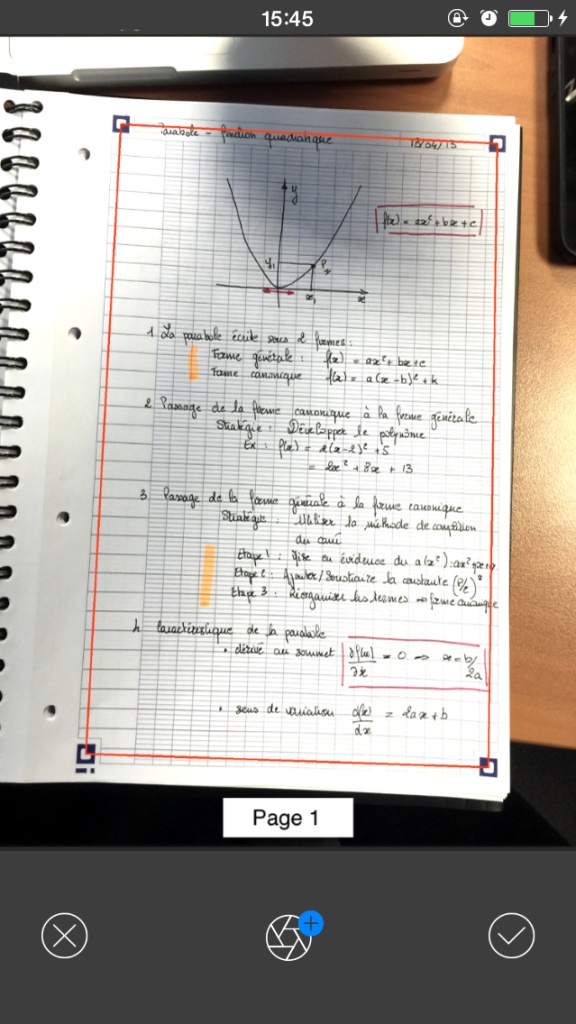 15:45
Parabole - fonction quadratique 18/04/13
y
f(x) = ax² + bx + c
y₁
P
x₁
x
1 La parabole écrite sous 2 formes:
Forme générale : f(x) = ax² + bx + c
Forme canonique f(x) = a(x - b)² + k
2 Passage de la forme canonique à la forme générale
Stratégie : Développer le polynôme
Ex : f(x) = 2(x-2)² + 5
= 2x² + 8x + 13
3 Passage de la forme générale à la forme canonique
Stratégie : Utiliser la méthode de complétion
du carré
Etape 1 : Mise en évidence du a(x²) : ax²
Etape 2 : Ajouter/Soustraire la constante (P/2)²
Etape 3 : Réorganiser les termes ⇒ forme canonique
4 Caractéristique de la parabole
• dérivé au sommet ∂f(x)/∂x = 0 ⇒ x = b/2a
• sens de variation d(x)/dx = 2ax + b
Page 1